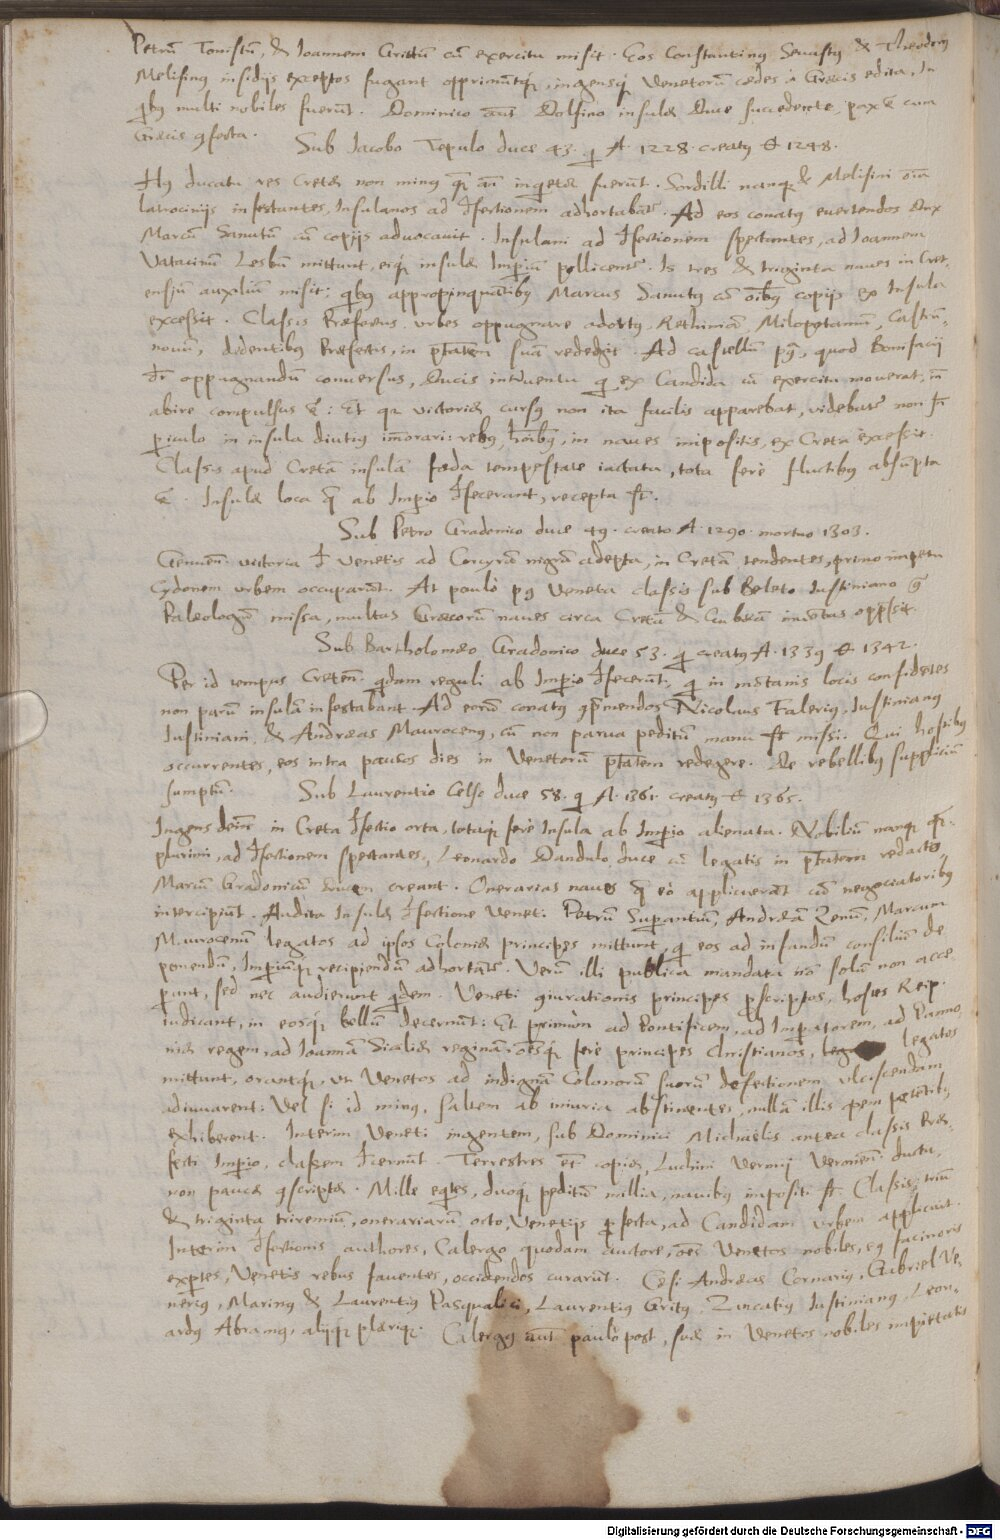 Petrū Tonistū, & Ioannem Grittū cū exercitu misit. Eos Constantinꝰ Sevastꝰ & Theodorꝰ
Melisinꝰ insidijs exceptos fugant opprimūtqꝫ, ingensqꝫ Venetorū cædes à Græcis edita, In
qbꝰ multi nobiles fuerūt. Dominico aūt Dolfino insulæ Duce succedente, pax ē cum
Græcis ꝯfecta.
Sub Iacobo Tepulo duce 43. q A. 1228. creatꝰ & 1248.
Hꝰ ducatu res Cretæ non minꝰ qꝫ añ inqetæ fuerūt. Sordilli nanqꝫ & Melisini oīa
latrocinijs infestantes, Insulanos ad dfectionem adhortabātꝛ. Ad eos conatꝰ evertendos Dux
Marcū Sanutū cū copijs advocavit. Insulani ad dfectionem spectantes, ad Ioannem
Vatacinū Lesbū mittunt, eiqꝫ insulæ Impiū pollicentꝛ. Is tres & triginta naves in Cret-
ensjū auxiliū misit: qbꝰ appropinquātibꝰ Marcus Sanutꝰ cū oībꝰ copijs ex Insula
excessit. Classis Præfectus, urbes oppugnare adortꝰ, Rethimā, Milopotamū, Castrū-
novū, dedentibꝰ Præfectis, in ptatem suā redegit. Ad castellū pꝰ, quod Bonifacij
dr̄ oppugnandū conversus, Ducis intventu q ex Candida cū exercitu moverat, īn
abire compulsus ē: Et qꝛ victoriæ cursꝰ non ita facilis apparebat, videbatꝛ non sn
piculo in insula diutiꝰ im̄orari: rebꝰ, hōībꝰ, in naves impositis, ex Creta excessit.
Classis apud Cretā insulā fœda tempestate iactata, tota ferè fluctibꝰ absūpta
ē. Insulæ loca q̄ ab Impio dfecerant, recepta st.
Sub Petro Gradonico duce 49. creato A. 1290. mortuo 1303.
Genuen. victoria d Venetis ad Corcyrā nigrā adepta, in Cretā tendentes, primo impetu
Cydonem urbem occuparūt. At paulò pꝰ Veneta classis sub Beleto Iustiniano ꝯ
Palæologū missa, multas Græcorū naves circa Cretā & Eubœā inventas opp̄ssit.
Sub Bartholomæo Gradonico duce 53. q creatꝰ A. 1339 & 1342.
Per id tempus Creten. qdam reguli ab Impio dfecerūt, q in mōtanis locis confidētes
non parū insulā infestabant. Ad eorū conatꝰ ꝯp̄mendos Nicolaus Falerius, Iustinianꝰ
Iustiniani, & Andræas Maurocenꝰ, cū non parva peditū manu st missi. Qui hostibꝰ
occurrentes, eos intra paucos dies in Venetorū ptatem redegere. De rebellibꝰ suppliciū
sumptū.
Sub Laurentio Celso duce 58. q A. 1361. creatꝰ & 1365.
Ingens dein in Creta dfectio orta, totaqꝫ ferè Insula ab Impio alienata. Nobiliū nanqꝫ q-
plurimi, ad dfectionem spectantes, Leonardo Dandulo duce cū legatis in ptatem redacto,
Marcū Gradonicū ducem creant. Onerarias naves q̄ eò applicuerāt cū negociatoribꝰ
intercipiūt. Audita Insulæ dfectione Venet: Petrū Supantiū, Andræā Zenū, Marcum
Maurocenū legatos ad ipsos Coloniæ principes mittunt, q eos ad infandū consiliū de
ponendū, Impiūqꝫ recipiendū adhortātꝛ. Verū illi publica mandata nō solū non acce
perunt, sed nec audierunt qdem. Veneti ꝯiurationis principes pscriptos, hostes Reip.
iudicant, in eosqꝫ bellū decernūt: Et primùm ad Pontificem, ad Impatorem, ad Panno-
niæ regem, ad Ioannā Siciliæ reginā, oēsqꝫ ferè principes Christianos, legatos
mittunt, orantqꝫ, ut Venetos ad indignā Colonorū suorū defectionem ulciscendam
adiuvarent: Vel si id minꝰ, saltem ab iniuria abstinentes, nullā illis opem petētibꝰ
exhiberent. Interim Veneti ingentem, sub Dominici Michaëlis antea classis Præ-
fecti Impio, classem dcernūt. Terrestres et copiæ, Luchini Vermij Veronen. ductu,
non paucæ ꝯscriptæ. Mille eqtes, duoqꝫ peditū millia, navibꝰ impositi st. Classis, triū
& triginta triremiū, onerariarū octo, Venetijs pfecta, ad Candidam urbem applicuit.
Interim dfectionis authores, Calergo quodam auctore, oēs Venetos nobiles, eꝰ facinoris
expertes, Venetis rebus faventes, occidendos curarūt. Cæsi Andræas Cornariꝰ, Gabriel Ve-
neriꝰ, Marinꝰ & Laurentiꝰ Pasqualici, Laurentiꝰ Gritꝰ, Zaccatiꝰ Iustinianꝰ, Leon-
ardꝰ Abramꝰ, alijqꝫ pleriqꝫ. Calergꝰ aūt paulò post, suæ in Venetos nobiles impietatis
Digitalisierung gefördert durch die Deutsche Forschungsgemeinschaft - DFG